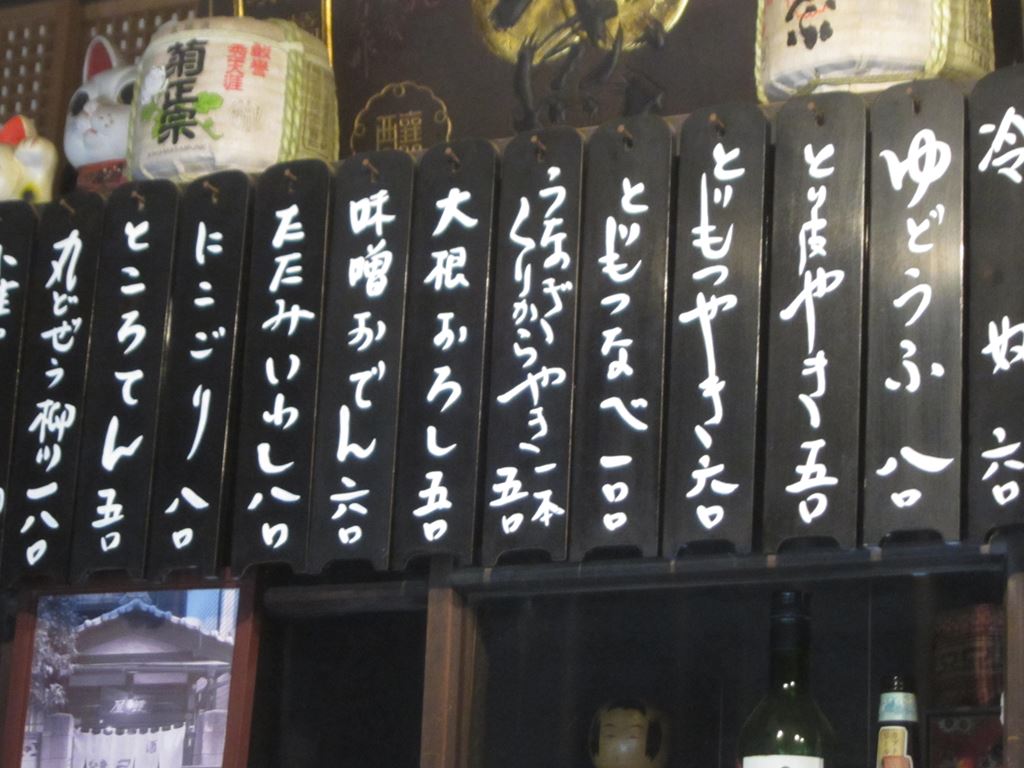 菊正宗
冷奴 六〇
ゆどうふ 八〇
とり皮やき 五〇
とりもつやき 六〇
とりもつなべ 一〇〇
うなぎくりからやき 一本 五〇
大根おろし 五〇
味噌おでん 六〇
たたみいわし 八〇
にこごり 八〇
ところてん 五〇
丸どぜう柳川 一八〇